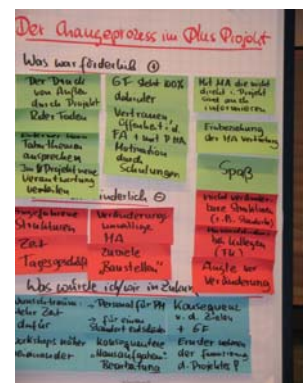 Der Changeprozess im Plus Projekt
Was war förderlich
Der Druck
von Außen
durch Projekt
Roter Faden
Tabuthemen
ansprechen
Im Projekt neue
Verantwortung
verteilen
GF steht 100%
dahinter
Vertrauen
Öffentl. i. d.
FA + mit P MA
Motivation
durch
Schulungen
Mit MA die nicht
direkt i. Projekt
sind auch
informieren
Einbeziehung
der MA Vertretung
Spaß
hinderlich
Strukturen
Zeit
Tagesgeschäft
Veränderungs
unwillige
MA
zuviele
"Baustellen"
nicht veränder-
bare Strukturen
(z.B. Standorte)
bei Kollegen
(TU)
Ängste vor
Veränderung
Was würde ich/wir im Zukun
mehr Zeit
dafür
Workshops näher
aneinander
Personal für PM
Für einen
Standort entscheiden
konsequentere
"Hausaufgaben"
Bearbeitung
Konsequenz
v. d. Zielen
+ GF
d. Projekte?